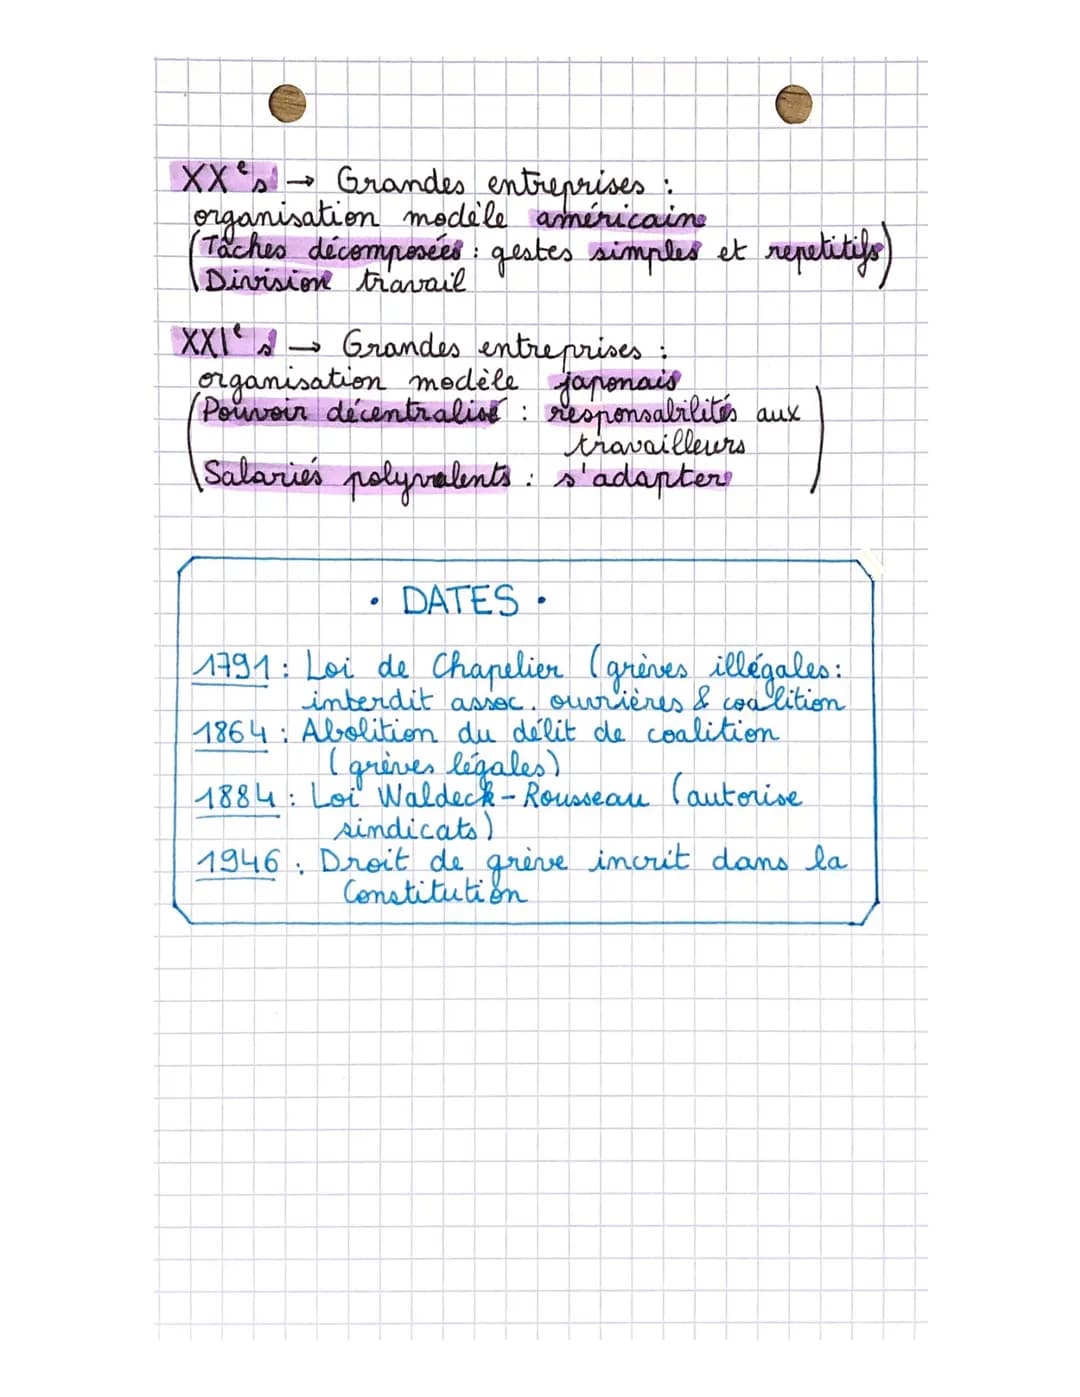 XXe s → Grandes entreprises :
organisation modèle américain
(Tâches décomposées : gestes simples et repetitifs)
Division travail
XXIe s → Grandes entreprises :
organisation modèle japonais
(Pouvoir décentralisé : responsabilités aux
travailleurs
Salariés polyvalents : s'adapter)
• DATES •
1791 : Loi de Chapelier (grèves illégales :
interdit assoc. ouvrières & coalition
1864 : Abolition du délit de coalition
(grèves légales)
1884 : Loi Waldeck-Rousseau (autorise
sindicats)
1946 : Droit de grève incrit dans la
Constitution